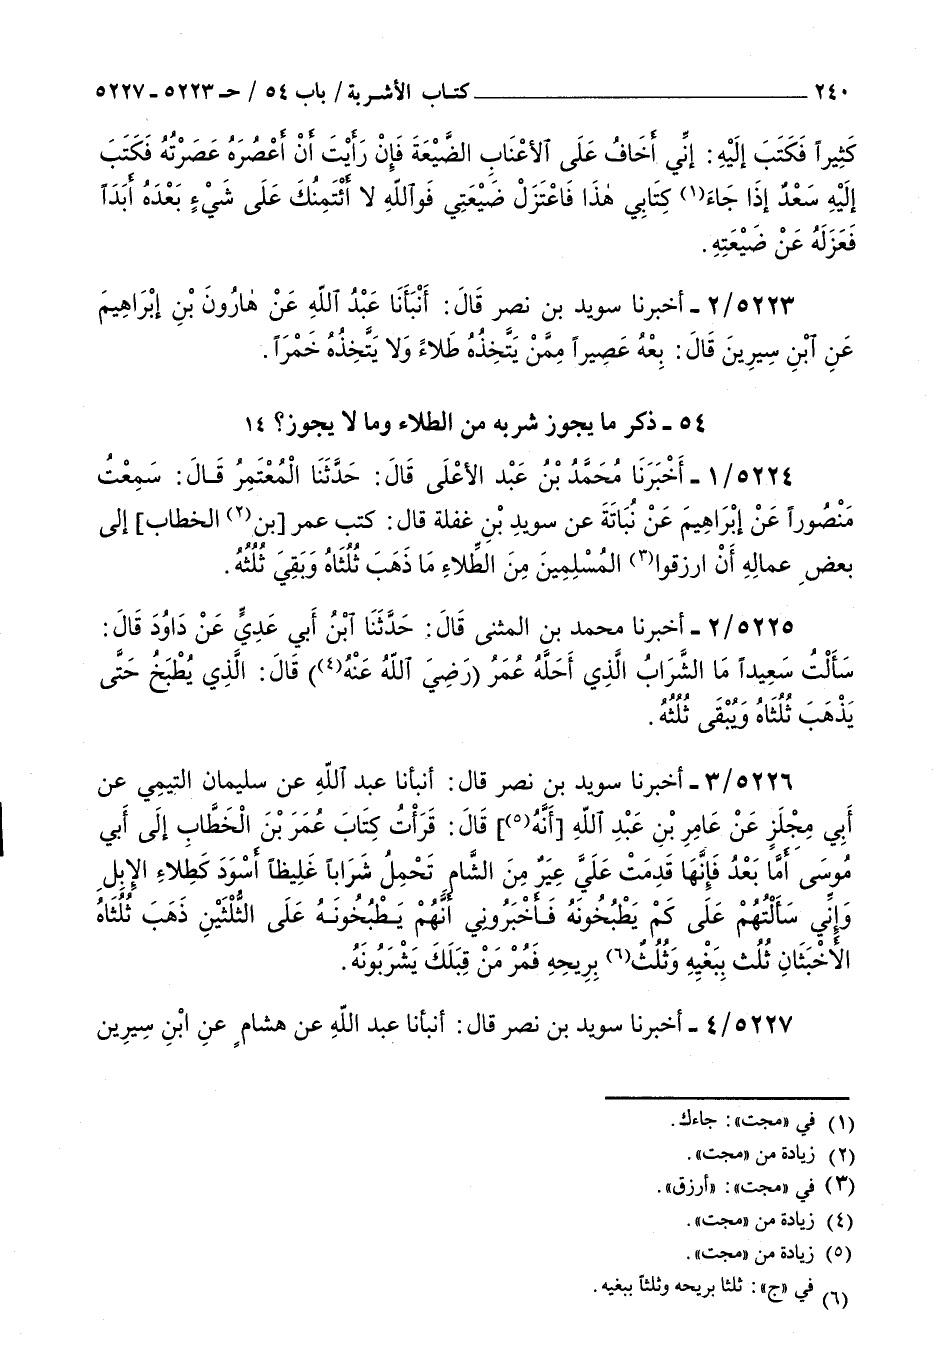 ٢٤٠ ــــــــــــــــــــ كتـاب الأشـربة/ باب ٥٤ / حـ ٥٢٢٣ ـ ٥٢٢٧
كَثِيراً فَكَتَبَ إِلَيْهِ: إِنِّي أَخَافُ عَلَى الأَعْنَابِ الضَّيْعَةَ فَإِنْ رَأَيْتَ أَنْ أَعْصُرَهُ عَصَرْتُهُ فَكَتَبَ
إِلَيْهِ سَعْدٌ إِذَا جَاءَ(١) كِتَابِي هٰذَا فَاعْتَزِلْ ضَيْعَتِي فَوَاللّهِ لا أَئْتَمِنُكَ عَلَى شَيْءٍ بَعْدَهُ أَبَدَاً
فَعَزَلَهُ عَنْ ضَيْعَتِهِ.
٢/٥٢٢٣ ـ أخبرنا سويد بن نصر قَالَ: أَنْبَأَنَا عَبْدُ اللّهِ عَنْ هٰارُونَ بْنِ إِبْرَاهِيمَ
عَنِ ابْنِ سِيرِينَ قَالَ: بِعْهُ عَصِيراً مِمَّنْ يَتَّخِذُهُ طَلاءً وَلا يَتَّخِذُهُ خَمْرَاً.
٥٤ ـ ذكر ما يجوز شربه من الطلاء وما لا يجوز؟ ١٤
١/٥٢٢٤ ـ أَخْبَرَنَا مُحَمَّدُ بْنُ عَبْدِ الأَعْلَى قَالَ: حَدَّثَنَا الْمُعْتَمِرُ قَـالَ: سَمِعْتُ
مَنْصُوراً عَنْ إِبْرَاهِيمَ عَنْ نُبَاتَةَ عن سويدِ بْنِ غفلة قال: كتب عمر [بن(٢) الخطاب] إلى
بعضِ عمالِهِ أَنْ ارزقوا(٣) المُسْلِمِينَ مِنَ الطِّلاءِ مَا ذَهَبَ ثُلُثَاهُ وَبَقِيَ ثُلُثُهُ.
٢/٥٢٢٥ ـ أخبرنا محمد بن المثنى قَالَ: حَدَّثَنَا ابْنُ أَبي عَدِيٍّ عَنْ دَاوُدَ قَالَ:
سَأَلْتُ سَعِيداً مَا الشَّرَابُ الَّذِي أَحَلَّهُ عُمَرُ (رَضِيَ اللّهُ عَنْهُ(٤)) قَالَ: الَّذِي يُطْبَخُ حَتَّى
يَذْهَبَ ثُلُثَاهُ وَيَبْقَى ثُلُثُهُ.
٣/٥٢٢٦ ـ أخبرنا سويد بن نصر قال: أنبأنا عبد اللّهِ عن سليمان التيمي عن
أَبِي مِجْلَزٍ عَنْ عَامِرِ بْنِ عَبْدِ اللّهِ [أَنَّهُ(٥)] قَالَ: قَرَأْتُ كِتَابَ عُمَرَ بْنَ الْخَطَّابِ إِلَى أَبِي
مُوسَى أَمَّا بَعْدُ فَإِنَّهَا قَدِمَتْ عَلَيَّ عِيَرٌ مِنَ الشَّامِ تَحْمِلُ شَرَاباً غَلِيظاً أَسْوَدَ كَطِلاءِ الإِبِلِ
وَإِنِّي سَأَلْتُهُمْ عَلَى كَمْ يَطْبُخُونَهُ فَـأَخْبَرُونِي أَنَّهُمْ يَـطْبُخُونَـهُ عَلَى الثُّلُثَيْنِ ذَهَبَ ثُلُثَاهُ
الأَخْبَثَانِ ثُلُث بِبَغْيِهِ وَثُلُثٌ(٦) بِرِيحِهِ فَمُرْ مَنْ قِبَلَكَ يَشْرَبُونَهُ.
٤/٥٢٢٧ ـ أخبرنا سويد بن نصر قال: أنبأنا عبد اللّهِ عن هشامٍ عنِ ابْنِ سِيرِين
(١) في «مجت»: جاءك.
(٢) زيادة من «مجت».
(٣) في «مجت»: «أرزق».
(٤) زيادة من «مجت».
(٥) زيادة من «مجت».
(٦) في «ج»: ثلثا بريحه وثلثاً ببغيه.